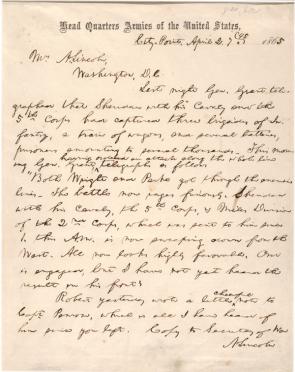 Head Quarters Armies of the United States,
City-Point, April 2. 1865
Mrs. A. Lincoln,
Washington, D.C.
Last night Gen. Grant tele-
graphed that Sheridan with his Cavalry and the
5th Corps had captured three brigades of In-
fantry, a train of wagons, and several batteries,
prisoners amounting to several thousands. This morn-
ing Gen. Grant, having ordered an attack along the whole line
telegraphs as follows.
"Both Wright and Parke got through the enemies
lines. The battle now rages furiously. Sheridan
with his Cavalry, the 5th Corps, & Miles Division
of the 2nd Corps, which was sent to him since
1. this A.M. is now sweeping down from the
West. All now looks highly favorable. Ord
is engaged, but I have not yet heard the
result on his front"
Robert yesterday wrote a little cheerful note to
Capt. Penrose, which is all I have heard of
him since you left. Copy to Secretary of War
A. Lincoln